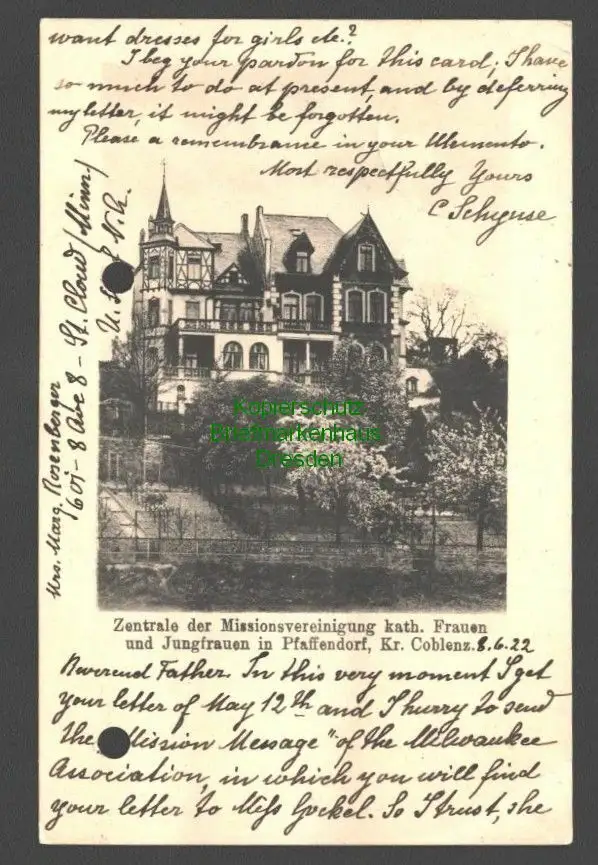 want dresses for girls etc.?
I beg your pardon for this card; I have
so much to do at present, and by deferring
my letter, it might be forgotten.
Please a remembrance in your Memento.
Most respectfully Yours
C Schynse
Mrs. Marg. Rosenberger
601 - 8 Ave 8 - St. Cloud (Minn)
U. N.A.
Kopierschutz
Briefmarkenhaus
Dresden
Zentrale der Missionsvereinigung kath. Frauen
und Jungfrauen in Pfaffendorf, Kr. Coblenz. 8.6.22
Reverend Father. In this very moment I get
your letter of May 12th and I hurry to send
the Mission Message" of the Milwaukee
Association, in which you will find
your letter to Miss Gockel. So I trust, she